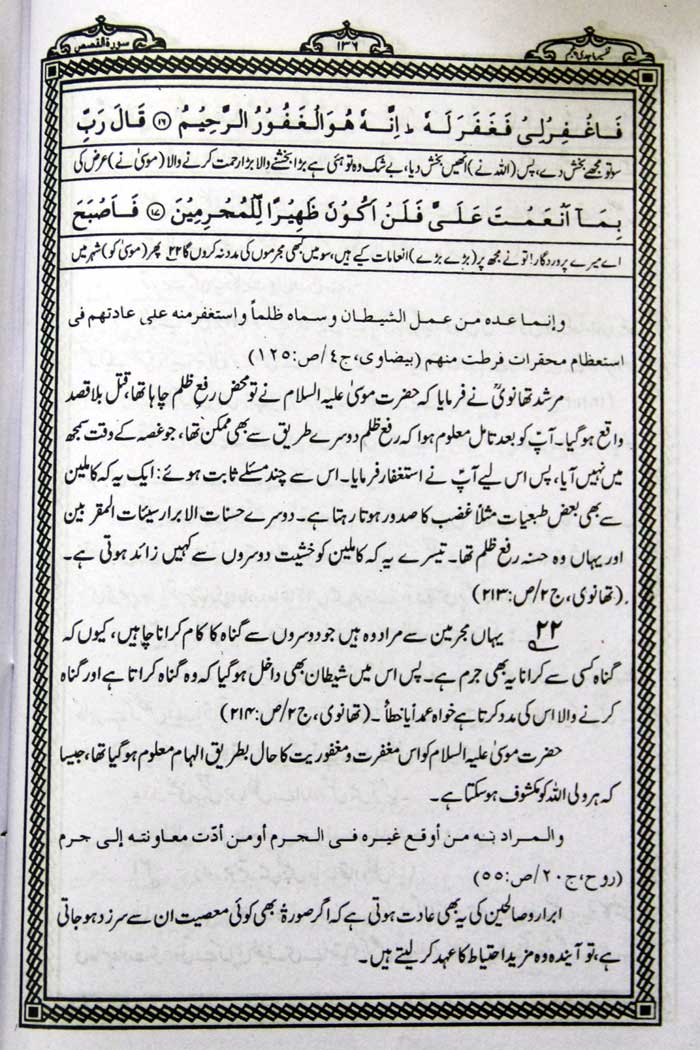 سورة القصص
۱۳۶
تفسیر ماجدی پنجم
فَاغْفِرْلِىْ فَغَفَرَ لَهٗ ؕ اِنَّهٗ هُوَ الْغَفُوْرُ الرَّحِيْمُ ۝۱۶ قَالَ رَبِّ
سو تو مجھے بخش دے، پس (اللہ نے) انھیں بخش دیا، بے شک وہ تو ہی ہے بڑا بخشنے والا بڑا رحمت کرنے والا (موسیٰ نے) عرض کی
بِمَآ اَنْعَمْتَ عَلَىَّ فَلَنْ اَكُوْنَ ظَهِيْرًا لِّلْمُجْرِمِيْنَ ۝۱۷ فَاَصْبَحَ
اے میرے پروردگار! تو نے مجھ پر (بڑے بڑے) انعامات کیے ہیں، سو میں بھی مجرموں کی مدد نہ کروں گا ۲۲ پھر (موسیٰ کو) شہر میں
وإنما عده من عمل الشيطان وسماه ظلماً واستغفر منه على عادتهم فى
استعظام محقرات فرطت منهم (بيضاوى، ج٤/ص:١٢٥)
مرشد تھانویؒ نے فرمایا کہ حضرت موسیٰ علیہ السلام نے تو محض رفع ظلم چاہا تھا، قتل بلاقصد
واقع ہوگیا۔ آپ کو بعد تامل معلوم ہوا کہ رفع ظلم دوسرے طریق سے بھی ممکن تھا، جو غصہ کے وقت سمجھ
میں نہیں آیا، پس اس لیے آپؑ نے استغفار فرمایا۔ اس سے چند مسئلے ثابت ہوئے: ایک یہ کہ کاملین
سے بھی بعض طبعیات مثلاً غضب کا صدور ہوتا رہتا ہے۔ دوسرے حسنات الابرار سیئات المقربین
اور یہاں وہ حسنہ رفع ظلم تھا۔ تیسرے یہ کہ کاملین کو خشیت دوسروں سے کہیں زائد ہوتی ہے۔
(تھانوی، ج۲/ص:۲۱۳)
۲۲ یہاں مجرمین سے مراد وہ ہیں جو دوسروں سے گناہ کا کام کرانا چاہیں، کیوں کہ
گناہ کسی سے کرانا یہ بھی جرم ہے۔ پس اس میں شیطان بھی داخل ہوگیا کہ وہ گناہ کراتا ہے اور گناہ
کرنے والا اس کی مدد کرتا ہے خواہ عمداً یا خطأً۔ (تھانوی، ج۲/ص:۲۱۴)
حضرت موسیٰ علیہ السلام کو اس مغفرت ومغفوریت کا حال بطریق الہام معلوم ہوگیا تھا، جیسا
کہ ہر ولی اللہ کو مکشوف ہوسکتا ہے۔
والمراد به من أوقع غيره فى الجرم أو من أدّت معاونته إلى جرم
(روح، ج۲۰/ص:۵۵)
ابرار وصالحین کی یہ بھی عادت ہوتی ہے کہ اگر صورۃً بھی کوئی معصیت ان سے سرزد ہو جاتی
ہے، تو آیندہ وہ مزید احتیاط کا عہد کر لیتے ہیں۔